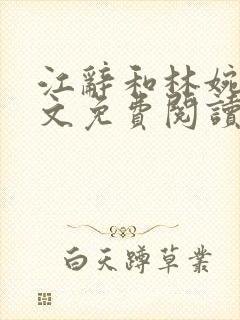 江辭和林婉
文免費閱讀
白天蹲草叢